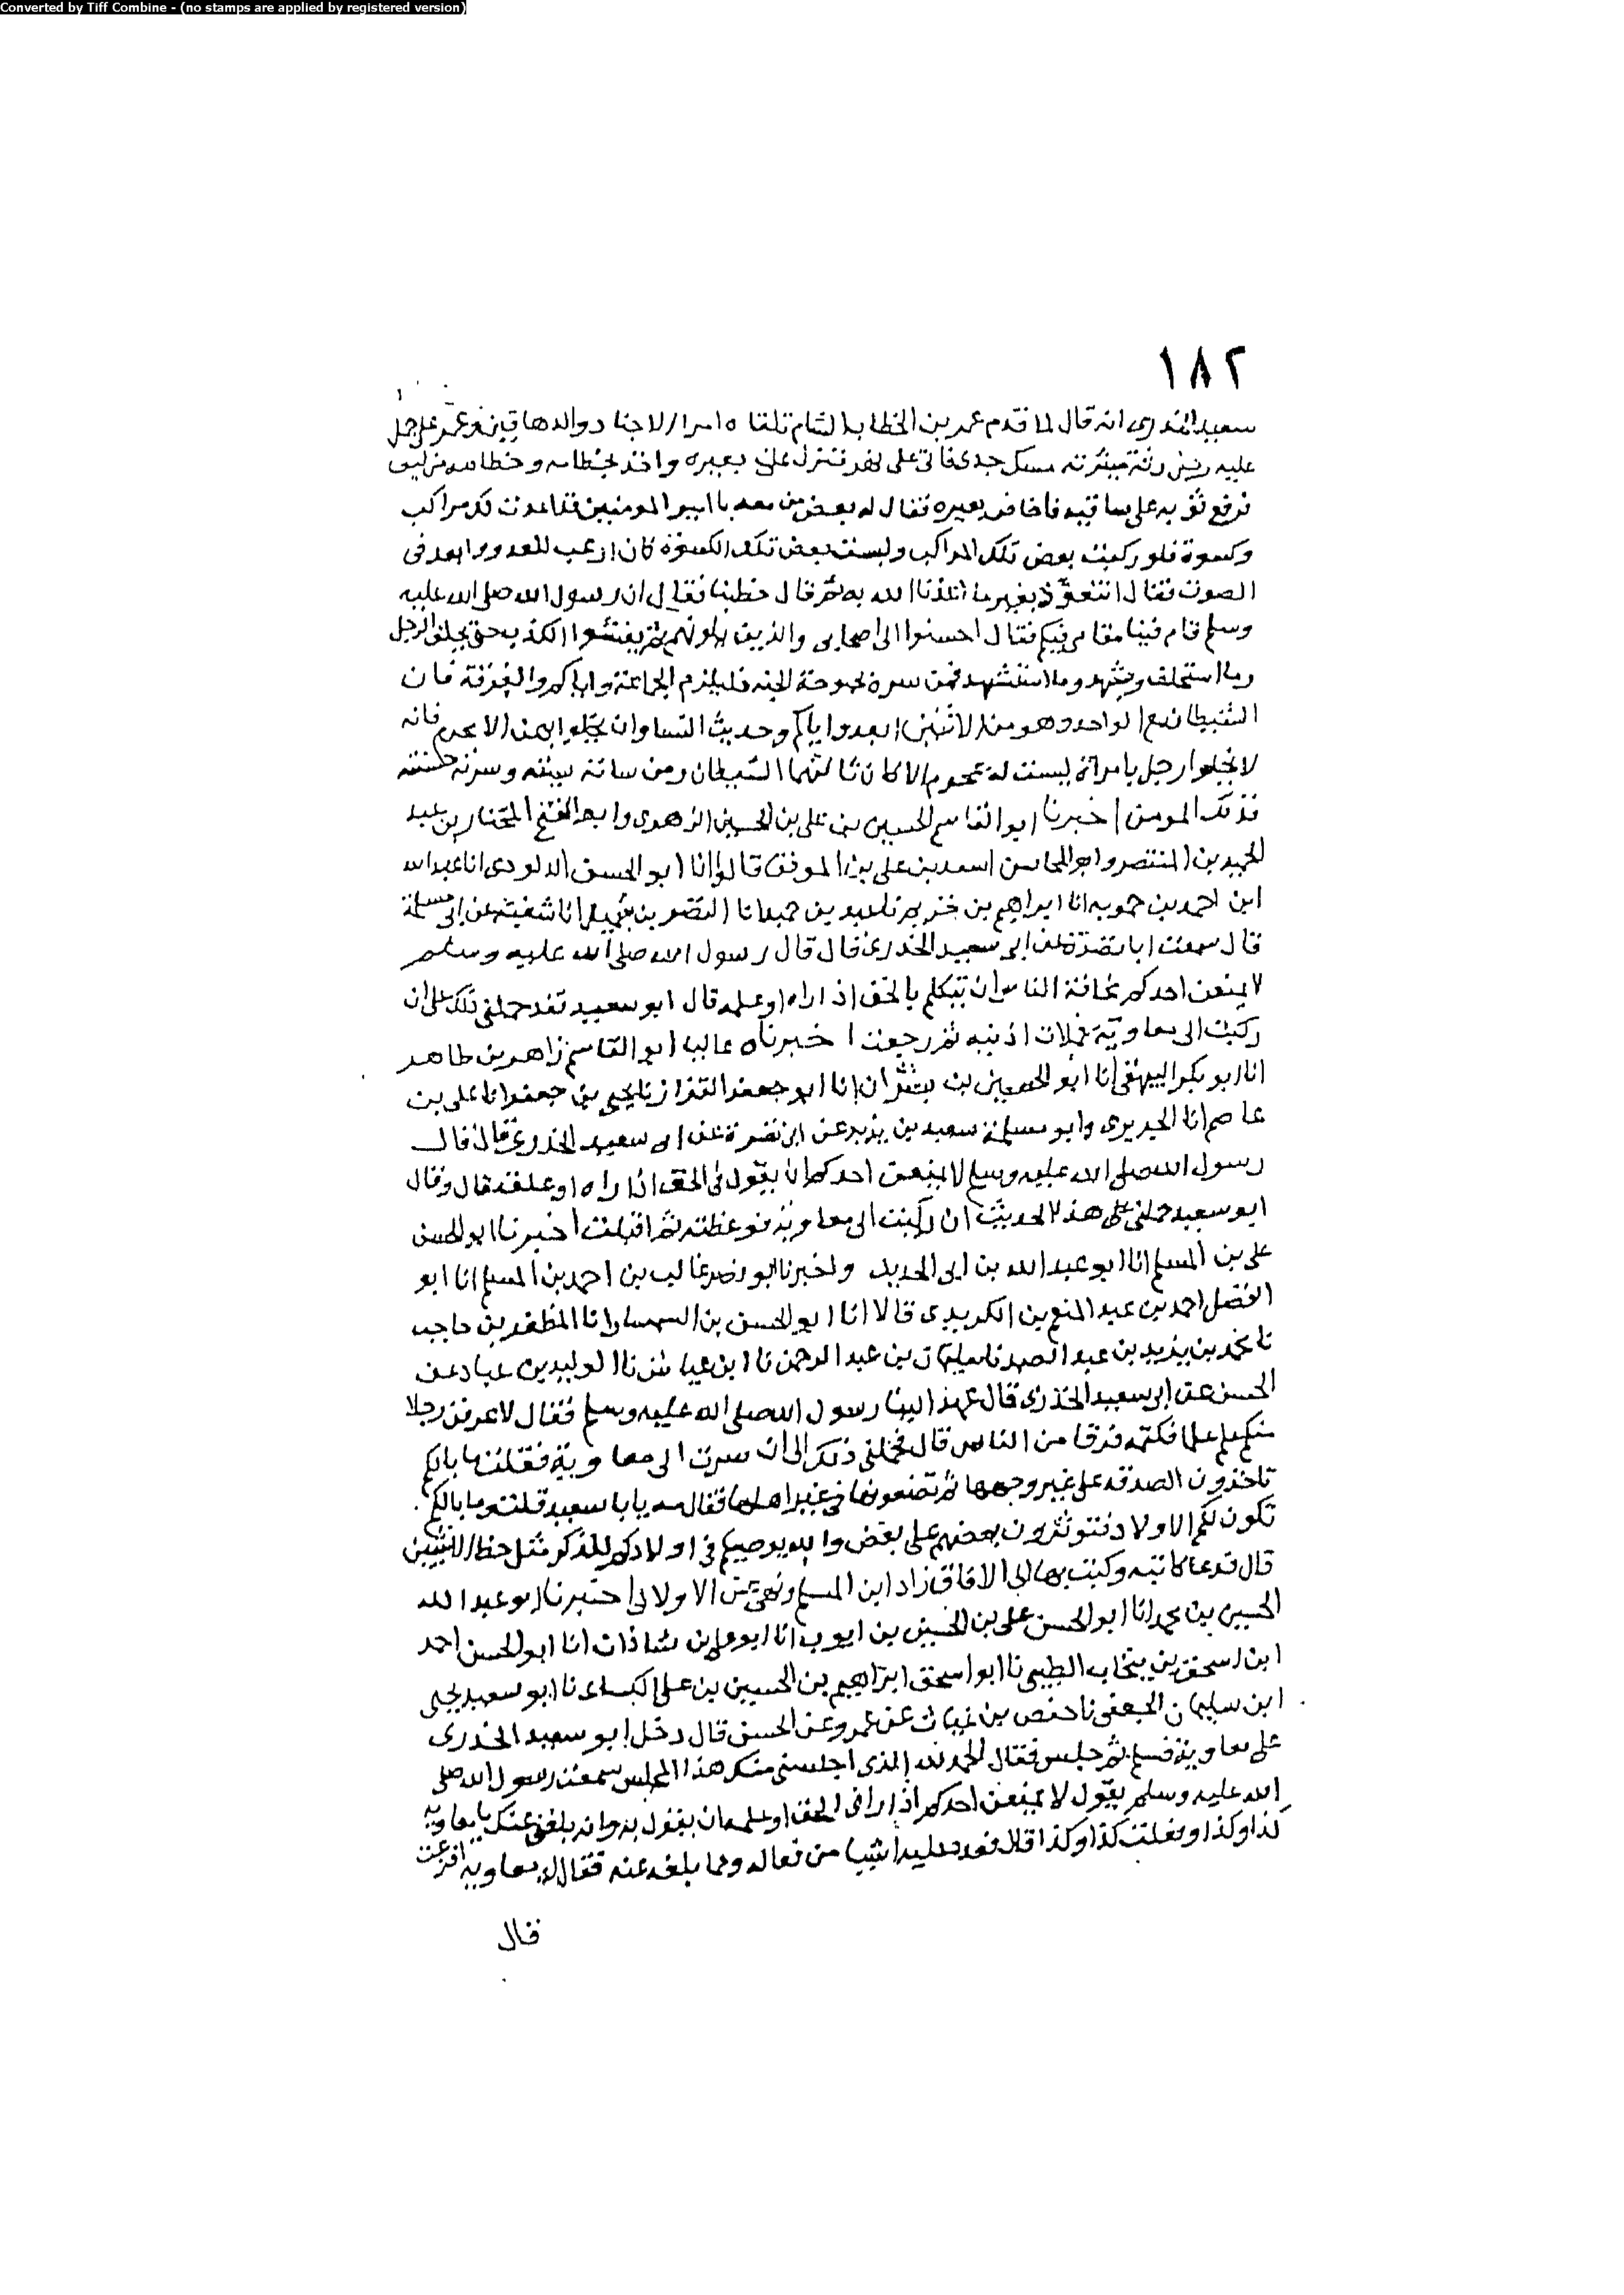 Converted by Tiff Combine - (no stamps are applied by registered version)
١٨٢
سعيد الخدري انه قال لما قدم عمر بن الخطاب الشام تلقاه امرا الاجناد والدهاقين وعمر على جمل
عليه
فرفع ثوبه على ساقيه فاخاض بعيره فقال له بعض من معه يا امير المومنين قد اعدت لك مراكب
وكسوة فلو ركبت بعض تلك المراكب ولبست بعض تلك الكسوة كان ارعب للعدو وابعد في
الصوت فقال انتعوذ بغير ما اعاذنا الله به ثم قال خطبنا فقال ان رسول الله صلى الله عليه
وسلم قام فينا مقامي فيكم فقال احسنوا الى اصحابي والذين يلونهم ثم يفشوا الكذب حتى يحلف الرجل
وما استحلف ويشهد وما استشهد فمن سره بحبوحة الجنه فليلزم الجماعة واياكم والفرقة فان
الشيطان مع الواحد وهو من الاثنين ابعد واياكم وحديث النسا وان يخلوا بهن الا محرم فانه
لا يخلوا رجل بامراة ليست له بمحرم الا كان ثالثهما الشيطان ومن ساته سيئته وسرته حسنته
فذلك المومن اخبرنا ابو القاسم الحسين بن علي بن الحسين الزهري وابو الفتح المختار بن عبد
الحميد بن المنتصر وابو المحاسن اسعد بن علي بن الموفق قالوا انا ابو الحسن الداودي انا عبد الله
ابن احمد بن حمويه انا ابراهيم بن خزيم نا عبد بن حميد انا النضر بن شميل انا شعبة عن ابي مسلمة
قال سمعت ابا نضرة عن ابي سعيد الخدري قال قال رسول الله صلى الله عليه وسلم
لا يمنعن احدكم مخافة الناس ان يتكلم بالحق اذا راه او علمه قال ابو سعيد فقد حملني ذلك على ان
ركبت الى معاوية فملات اذنيه ثم رجعت اخبرناه عاليا ابو القاسم زاهر بن طاهر
انا ابو بكر البيهقي انا ابو الحسين بن بشران انا ابو جعفر الرزاز نا يحيى بن جعفر انا علي بن
عاصم انا الجريري وابو مسلمة سعيد بن يزيد عن ابي نضرة عن ابي سعيد الخدري قال قال
رسول الله صلى الله عليه وسلم لا يمنعن احدكم ان يقول في الحق اذا راه او علمه قال وقال
ابو سعيد حملني على هذا الحديث ان ركبت الى معاوية فوعظته ثم اقبلت اخبرنا ابو الحسن
علي بن المسلم انا ابو عبد الله بن ابي الحديد واخبرنا ابو نصر غالب بن احمد بن المسلم انا ابو
الفضل احمد بن عبد المنعم بن الكريدي قالا انا ابو الحسن بن السمسار انا المظفر بن حاجب
نا محمد بن يزيد بن عبد الصمد نا سليمان بن عبد الرحمن نا ابن عياش نا الوليد بن عباد عن
الحسن عن ابي سعيد الخدري قال عهد الينا رسول الله صلى الله عليه وسلم فقال لا اعرفن رجلا
منكم علم علما فكتمه فرقا من الناس قال فحملني ذلك الى ان سرت الى معاوية فقلت ما بالكم
تاخذون الصدقه على غير وجهها ثم تضعونها في غير اهلها فقال مه يا با سعيد قلت وما بالكم
تكون لكم الاولاد فتوثرون بعضهم على بعض والله يوصيكم في اولادكم للذكر مثل حظ الانثيين
قال فدعا كاتبه وكتب بها الى الافاق زاد ابن المسلم ونهى عن الاولى اخبرنا ابو عبد الله
الحسين بن محمد انا ابو الحسن علي بن الحسين بن ايوب انا ابو علي بن شاذان انا ابو الحسن احمد
ابن اسحق بن نيخاب الطيبي نا ابو اسحق ابراهيم بن الحسين بن علي الكسائي نا ابو سعيد يحيى
ابن سليمان الجعفي نا حفص بن غياث عن عمرو عن الحسن قال دخل ابو سعيد الخدري
على معاوية فسلم ثم جلس فقال الحمد لله الذي اجلسني منك هذا المجلس سمعت رسول الله صلى
الله عليه وسلم يقول لا يمنعن احدكم اذا راى الحق او علمه ان يقول به وانه بلغني عنك يا معاوية
كذا وكذا وفعلت كذا وكذا قال فعدد عليه اشيا من فعاله ومما بلغه عنه فقال له معاوية افرغت
قال